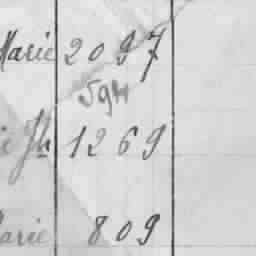 Marie 2097
594
ie Jh 1269
Marie 809